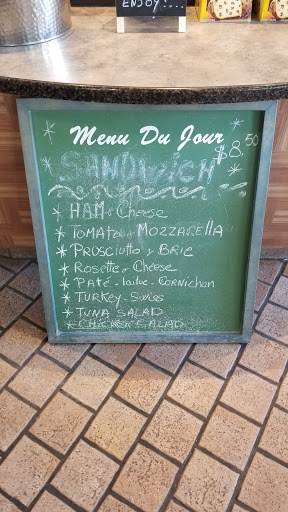 ENJOY!...
Menu Du Jour
SANDWICH $8.50
* HAM & Cheese
* TOMATO & MOZZARELLA
* PROSCIUTTO & BRIE
* Rosette & Cheese
* PATÉ - laitue - CORNICHON
* Turkey - Swiss
* TUNA SALAD
* CHICKEN SALAD